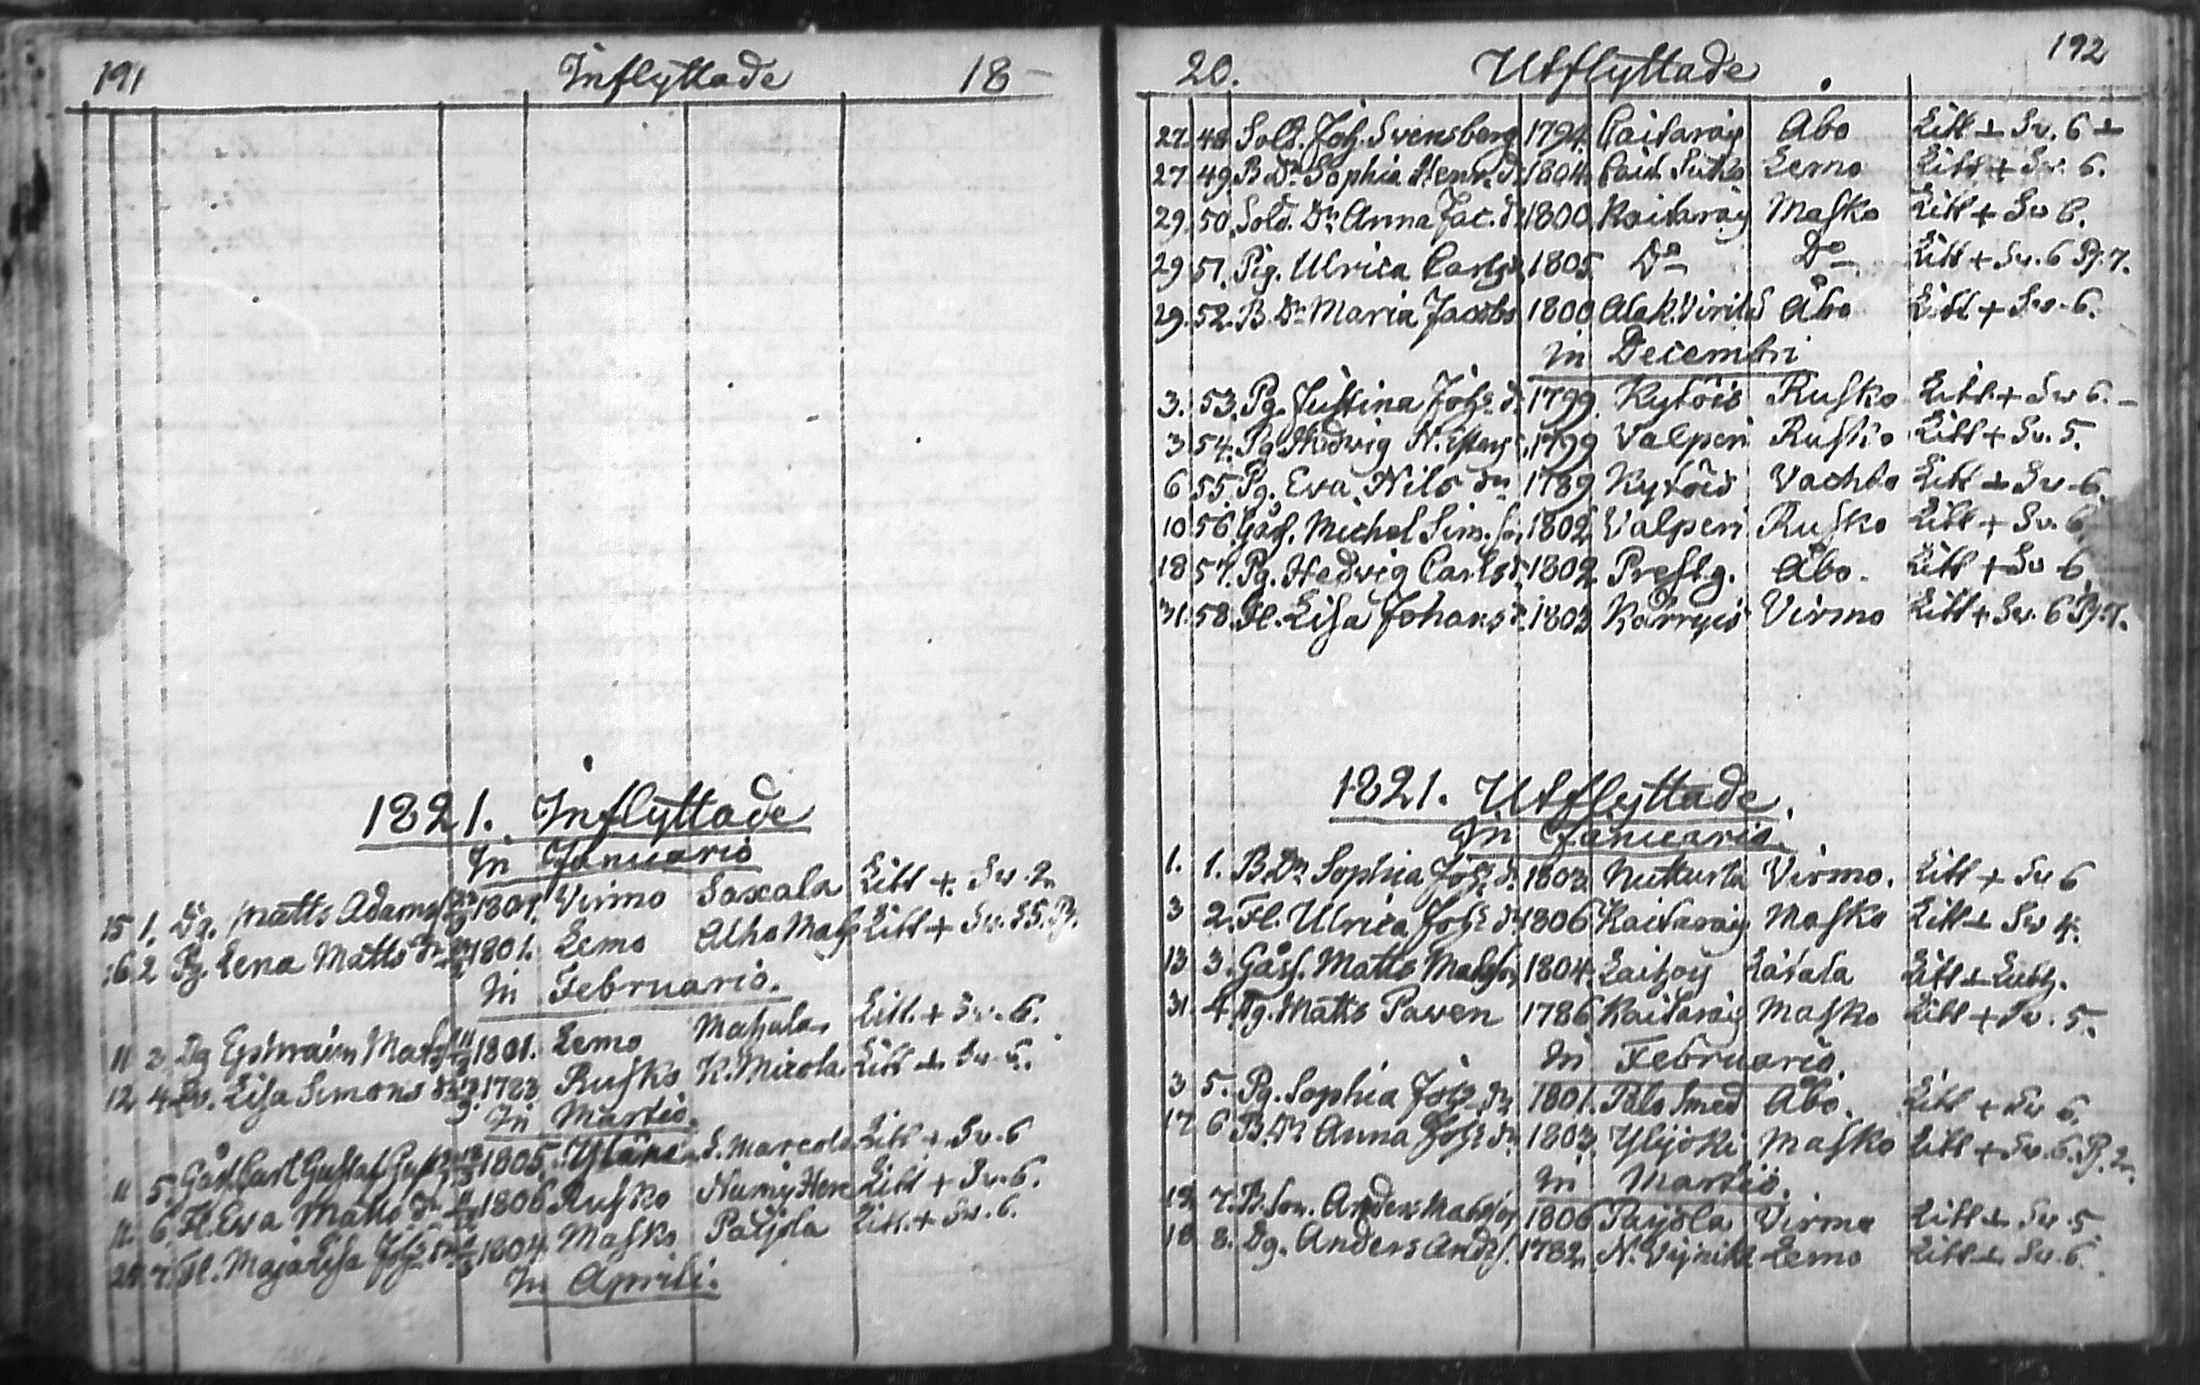 191 Inflyttade 18
1821. Inflyttade
In Januario
15 1. Dg. Matts Adams 1801. Virmo Saxala Litt + Sv. 2
16 2 Pg. Lena Matts dr 1801. Lemo Alho Litt + Sv. 5
In Februario.
11 3 Dg Ephraim Mats 1801. Lemo Litt. + Sv. 6.
12 4 Lisa Simons 1783 Rusko K. Mickola Litt + Sv. 5.
In Martio.
11 5. Gåss. Carl Gustaf 1805. Yläne S. Marcola Litt + Sv. 6
11. 6. Fl. Eva Matts dr 1806 Rusko Litt + Sv. 6.
7. Fl. Maja Lisa Joh. dr 1804 Masko Paijola Litt. + Sv. 6.
In Aprili.
20. Utflyttade 192
27. 48 Sold. Joh. Svensberg 1794. Caitaraîs Åbo Litt + Sv. 6 +
27 49. B. Dr Sophia Henr. d. 1804. Lemo Litt + Sv. 6.
29. 50. Sold. Dr Anna Jac. d. 1800. Kaitarais Masko Litt + Sv 6.
29 51. Pig. Ulrica Carls 1805. Do Do Litt + Sv. 6 Pg. 7.
29. 52. B. Dr Maria Jacobs 1800 Åbo Litt + Sv. 6.
In Decembri
3. 53. Pg. Justina Joh. d. 1799. Kytöis Rusko Litt + Sv 6.
3 54. Pg Hedvig 1799 Valperi Rusko Litt + Sv. 5.
6 55. Pg. Eva Nils dr 1789 Kytöis Vachto Litt + Sv. 6.
10 56. Gåss. Michel Sim. s. 1802. Valperi Rusko Litt + Sv. 6
18 57. Pg. Hedvig Carls d. 1802. Prestg. Åbo. Litt + Sv 6
31. 58. Fl. Lisa Johans d. 1803 Virmo Litt + Sv. 6 Pg. 7.
1821. Utflyttade.
In Januario.
1. 1. B. Dr Sophia Joh. d. 1803. Nutturla Virmo. Litt + Sv 6
3 2. Fl. Ulrica Joh. dr 1806 Kaitarais Masko Litt + Sv 4.
13 3. Gåss. Matts Matss. 1804. Letala Litt +
31. 4. Dg. Matts Paven 1786 Kaitarais Masko Litt + Sv. 5.
In Februario.
3 5. Pg. Sophia Joh. dr 1801. Palo Smed Åbo. Litt + Sv 6.
17 6 B. Dr Anna Joh. dr 1803. Ylijoki Masko Litt + Sv. 6.
In Martio.
7. B. Son. Anders Matsson 1806 Paijola Virmo Litt + Sv. 5
18 8. Dg. Anders Ands. 1782. Lemo Litt + Sv. 6.